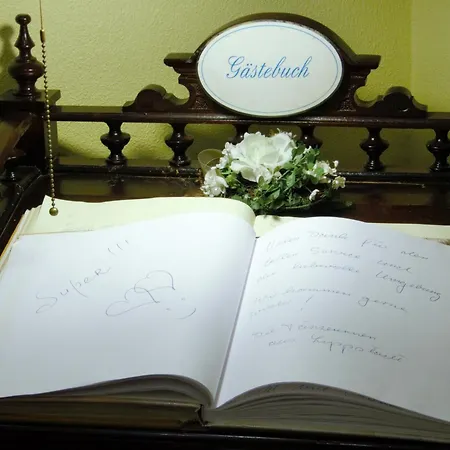 Gästebuch
Super !!!
Vielen Dank für den
guten Service und
die liebevolle Umgebung
Wir kommen gerne
wieder !
Die Tänzerinnen
aus Lippstadt